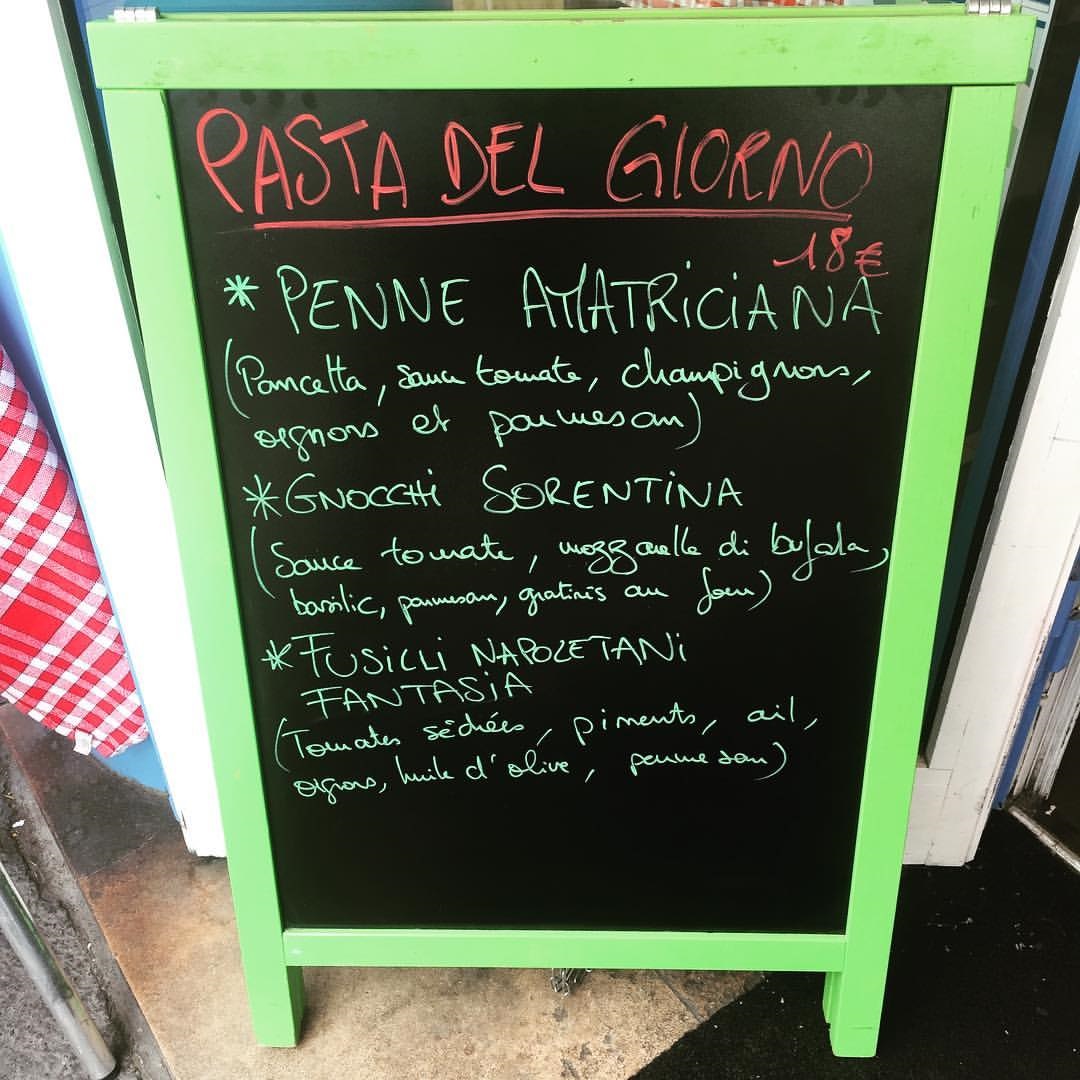 PASTA DEL GIORNO
18€
* PENNE AMATRICIANA
(Pancetta, sauce tomate, champignons,
oignons et parmesan)
* GNOCCHi SORENTiNA
(Sauce tomate, mozzarella di bufala,
basilic, parmesan, gratinés au four)
* FUSiLLi NAPOLETANi
FANTASiA
(Tomates séchées, piments, ail,
oignons, huile d'olive, parmesan)